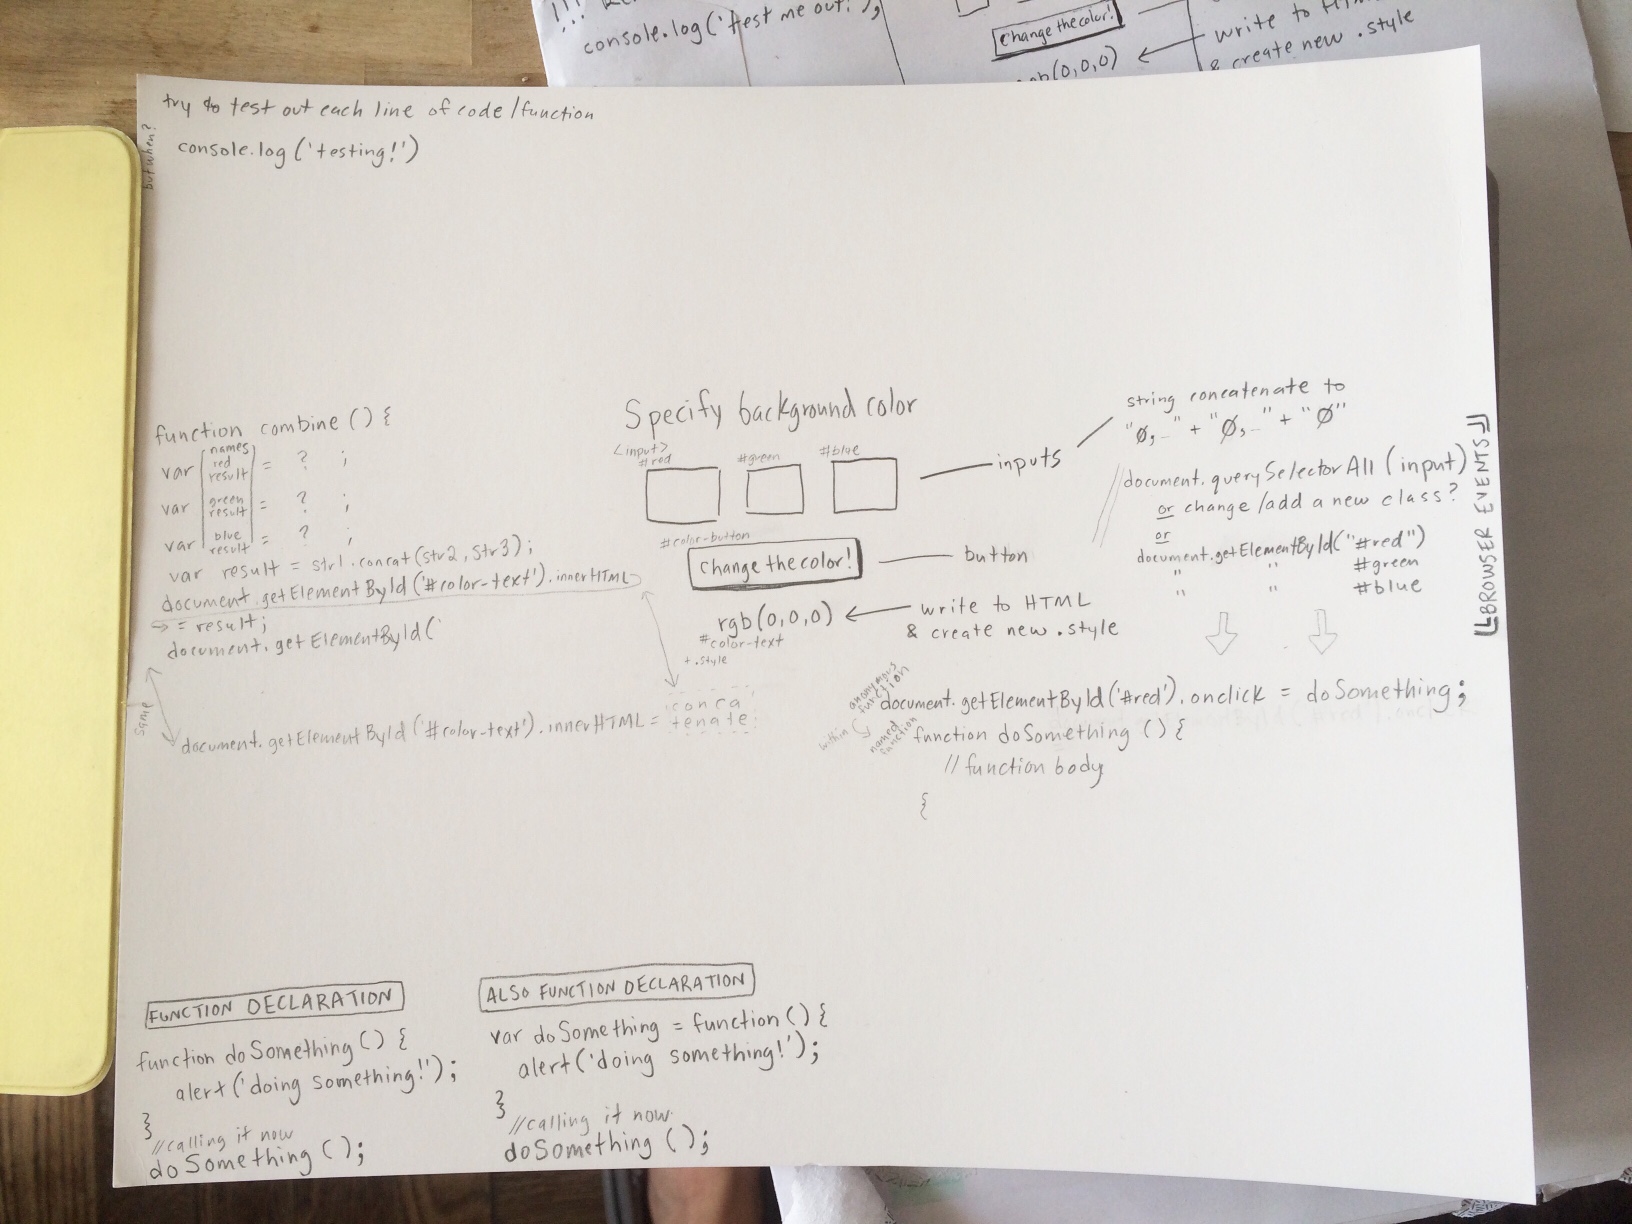 console.log('test me out!');
change the color!
(0,0,0)
write to
& create new .style
try to test out each line of code/function
but when?
console.log('testing!')
function combine () {
var names red result = ? ;
var green result = ? ;
var blue result = ? ;
var result = str1.concat(str2, str3);
document.getElementById('#color-text').innerHTML
→ = result;
document.getElementById('
same
document.getElementById('#color-text').innerHTML = conca
tenate
Specify background color
<input>
#red #green #blue
inputs
#color-button
change the color!
button
rgb(0,0,0) ← write to HTML
& create new .style
#color-text
+ .style
string concatenate to
"Ø,_" + "Ø,_" + "Ø"
document.querySelectorAll(input)
or change/add a new class?
or
document.getElementById("#red")
" " #green
" " #blue
BROWSER EVENTS
anonymous
function
within
named
function
document.getElementById('#red').onclick = doSomething;
function doSomething () {
// function body
{
FUNCTION DECLARATION
function doSomething () {
alert('doing something!');
}
//calling it now
doSomething ();
ALSO FUNCTION DECLARATION
var doSomething = function () {
alert('doing something!');
}
//calling it now
doSomething ();